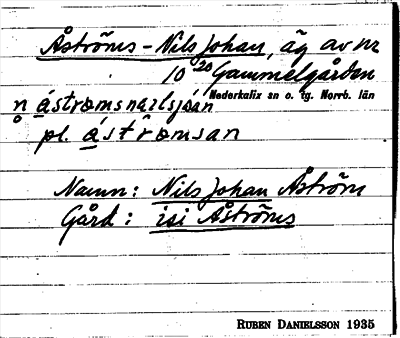 Åströms-Nils Johan, äg av nr
10²⁰ Gammelgården
Nederkalix sn o. tg. Norrb. län
pl. ástrømsan
Namn: Nils Johan Åström
Gård: isi Åströms
RUBEN DANIELSSON 1935